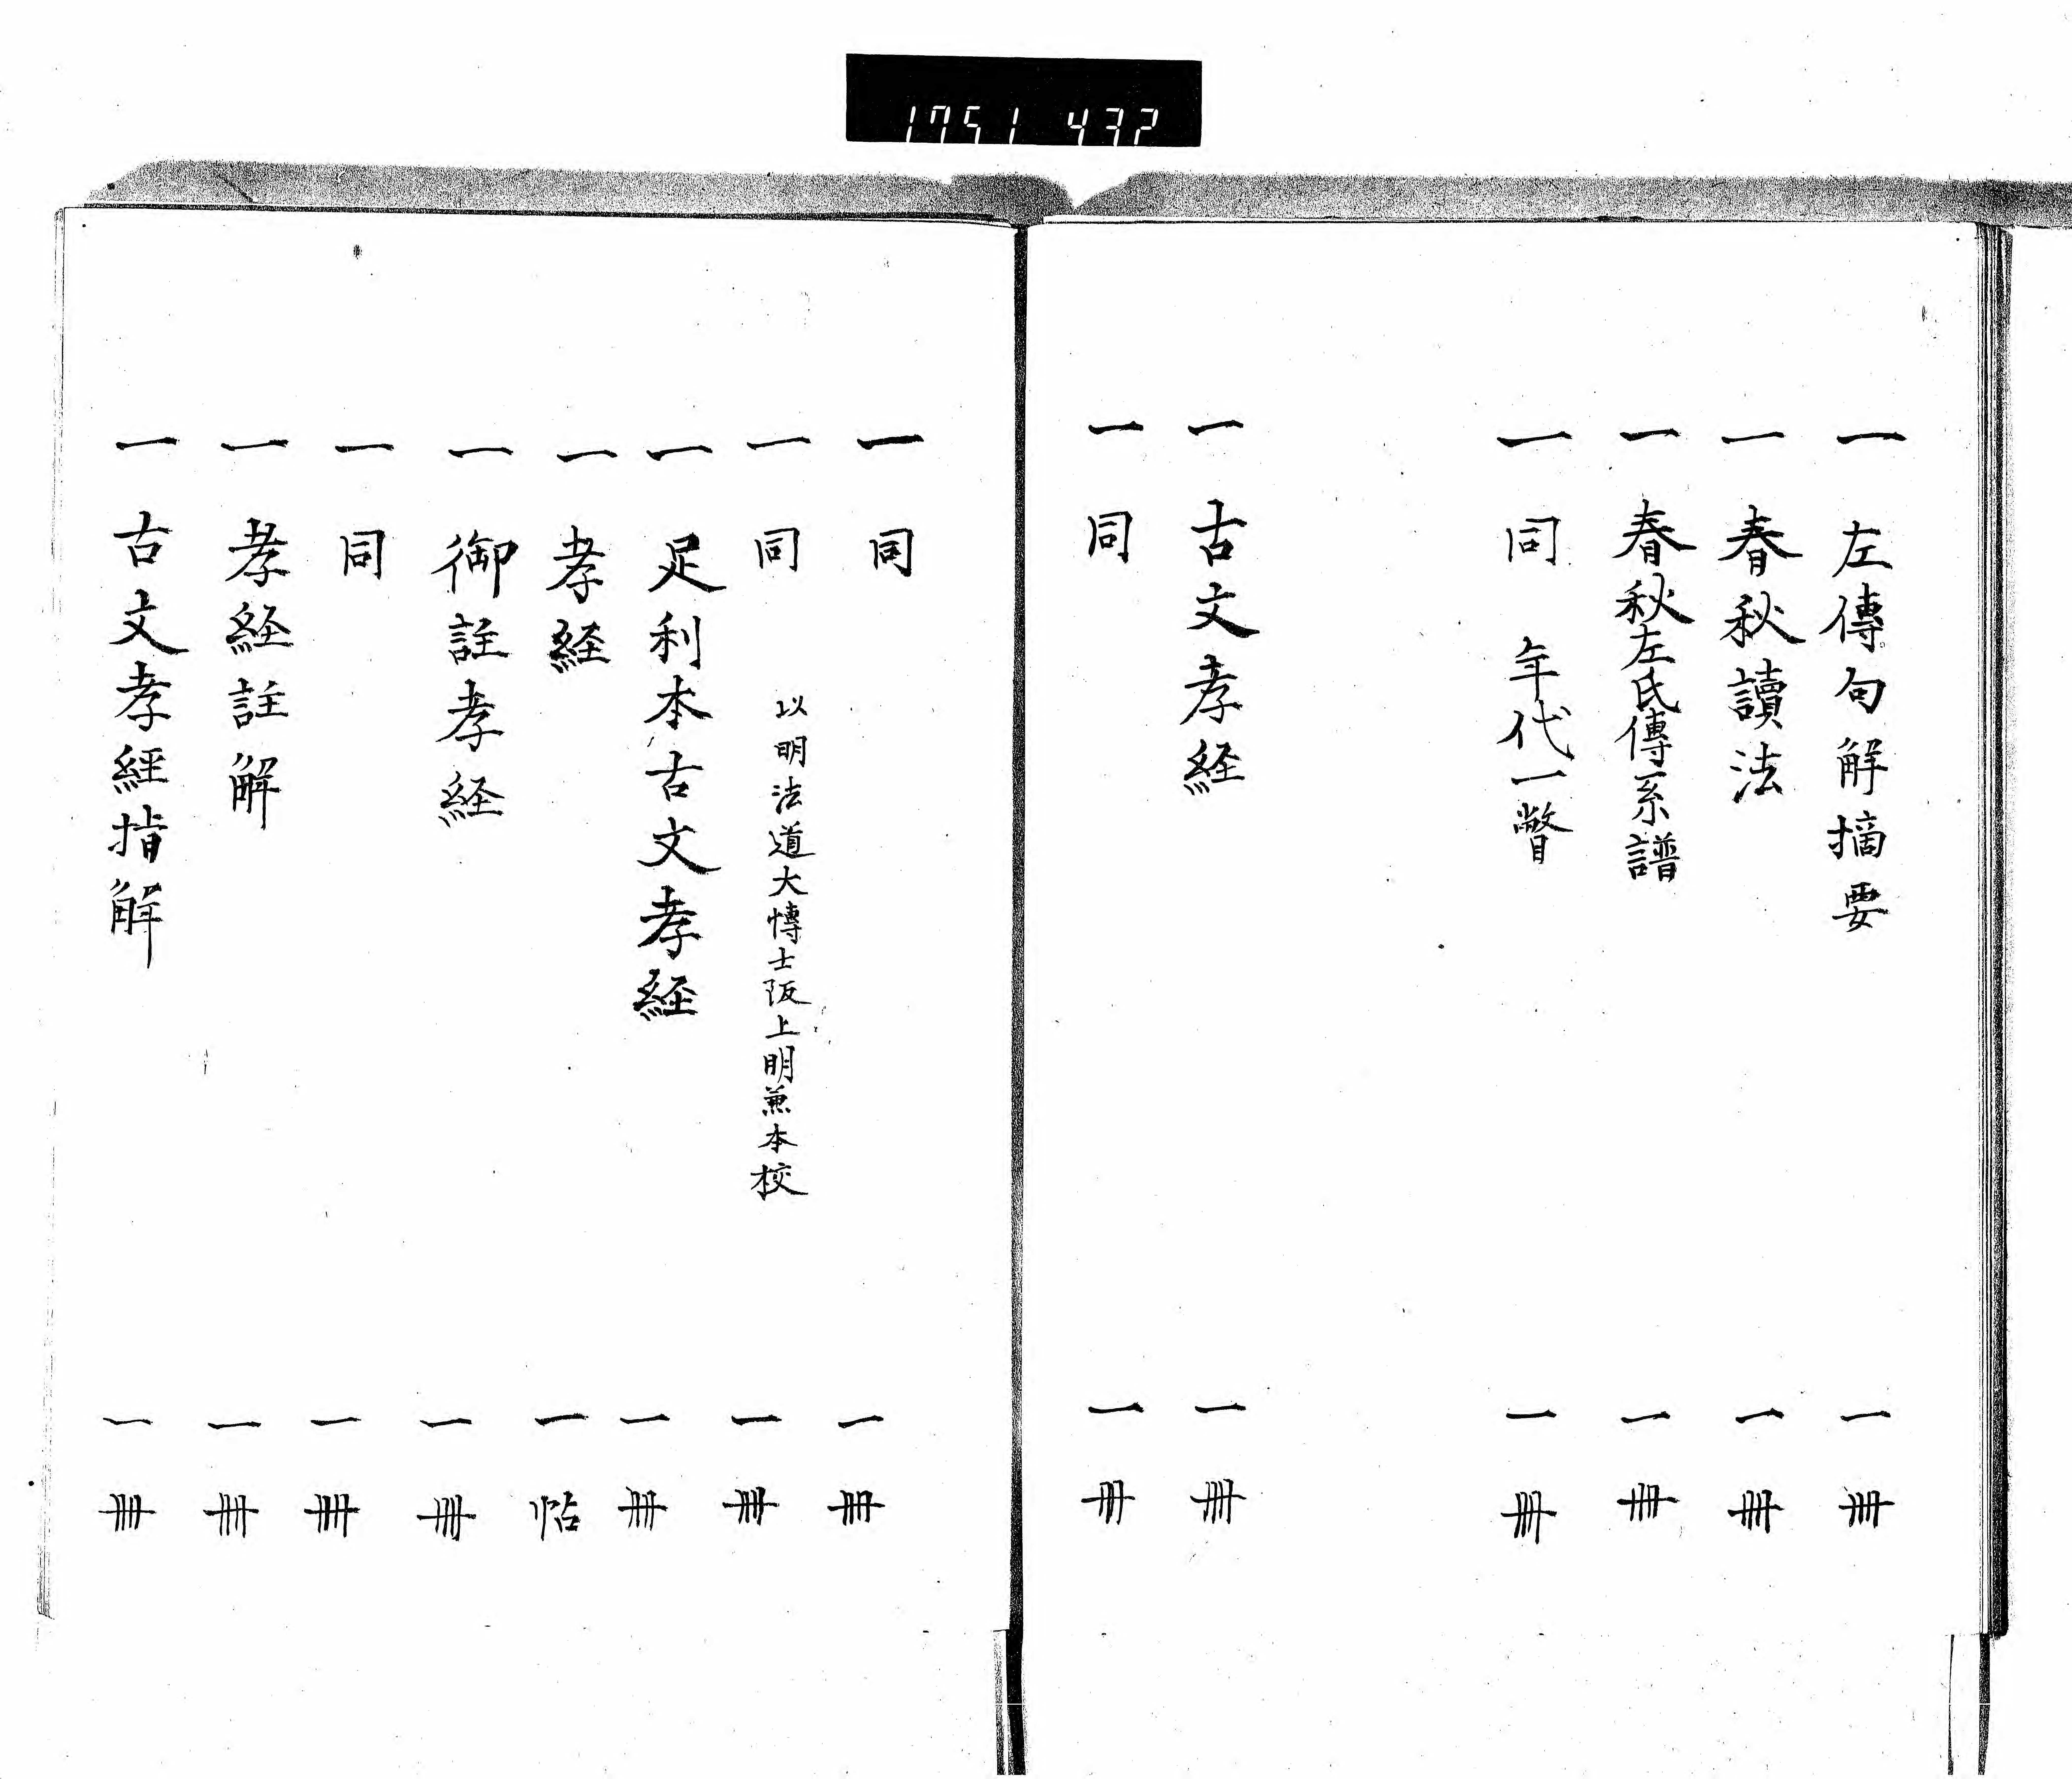 1751 432
一 左傳句解摘要 一冊
一 春秋讀法 一冊
一 春秋左氏傳系譜 一冊
一 同 年代一瞥 一冊
一 古文孝経 一冊
一 同 一冊
一 同 一冊
一 同 以明法道大博士阪上明兼本校 一冊
一 足利本古文孝経 一冊
一 孝経 一帖
一 御註孝経 一冊
一 同 一冊
一 孝経註解 一冊
一 古文孝經指解 一冊